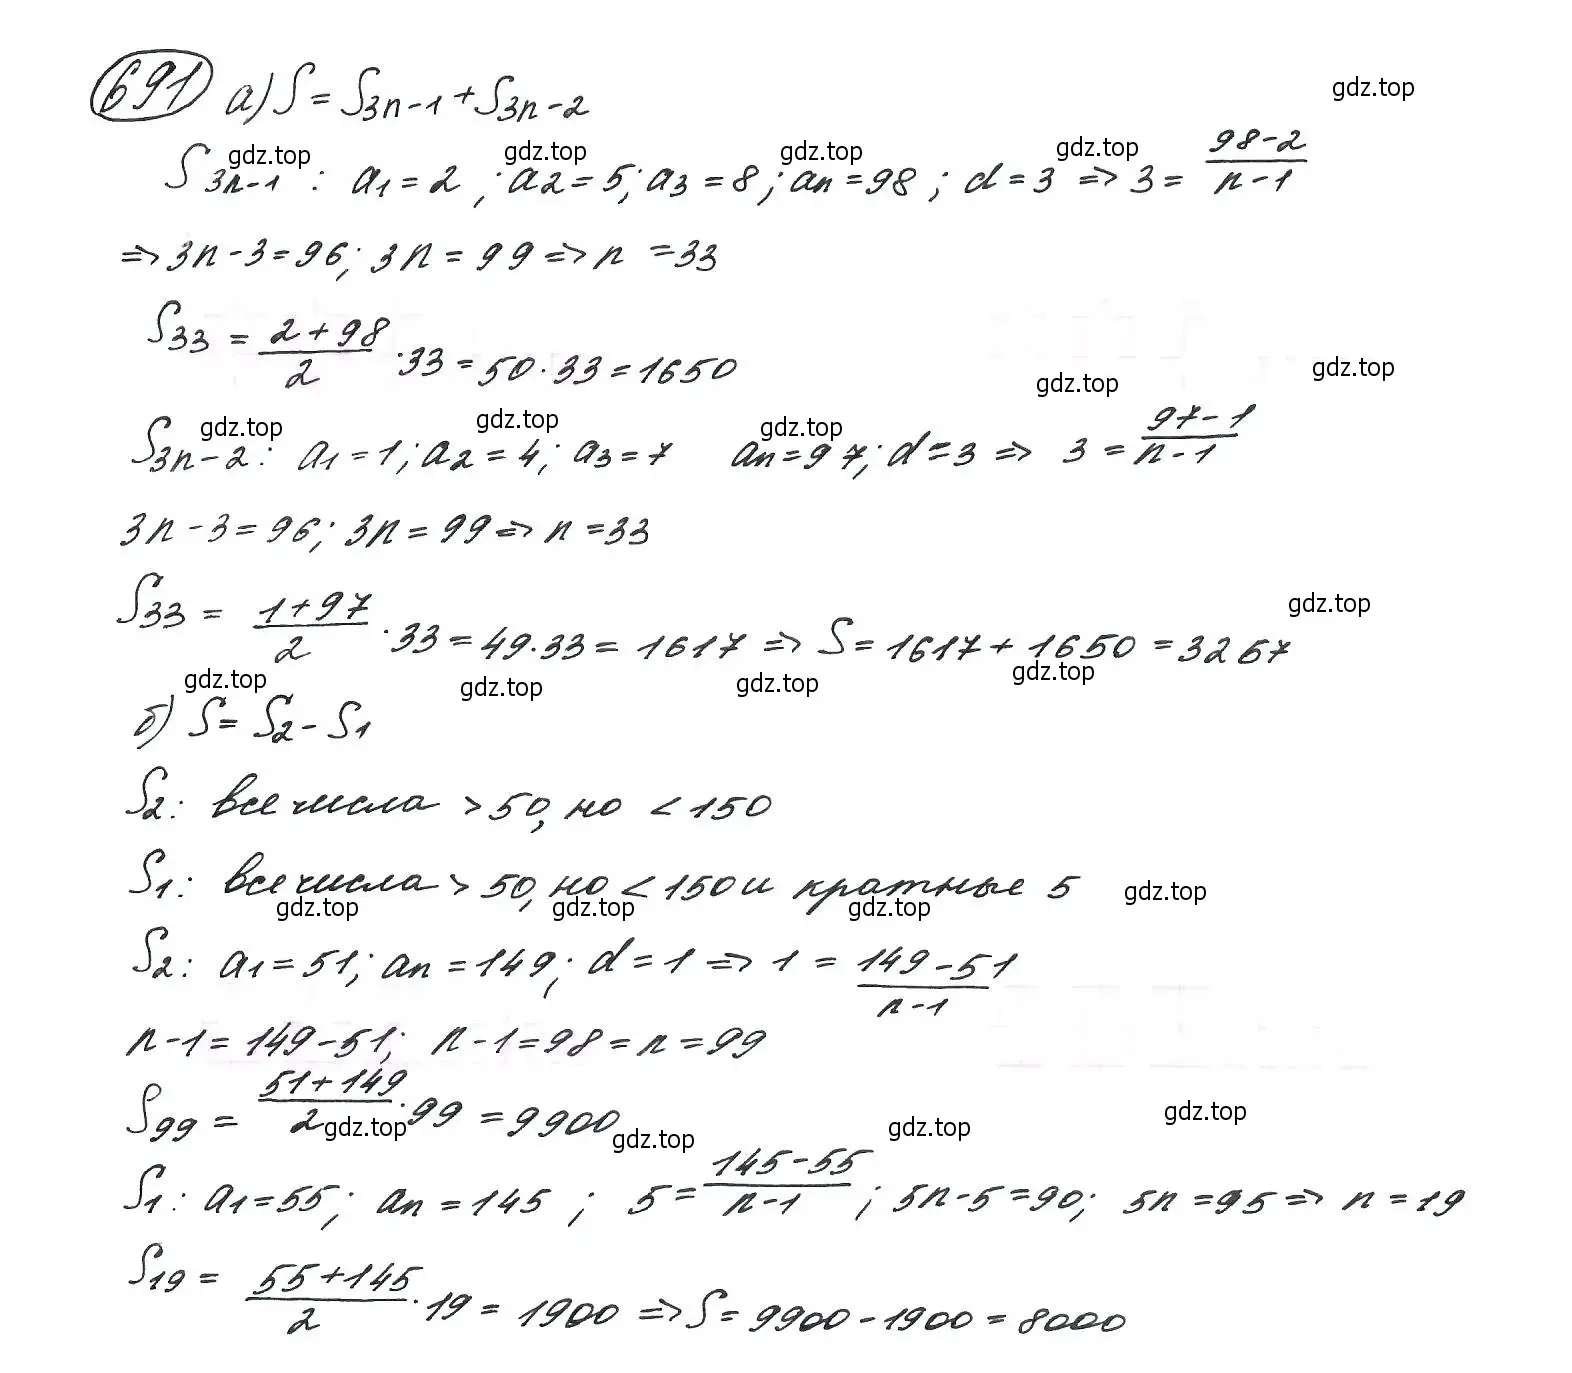 691 а) S = S3n-1 + S3n-2
gdz.top
S3n-1 : a1 = 2 ; a2 = 5; a3 = 8; an = 98 ; d = 3 => 3 = (98-2)/(n-1)
gdz.top gdz.top gdz.top gdz.top
=> 3n - 3 = 96; 3n = 99 => n = 33
S33 = (2 + 98)/2 · 33 = 50 · 33 = 1650
gdz.top gdz.top
gdz.top gdz.top gdz.top
S3n-2: a1 = 1; a2 = 4; a3 = 7 an = 97; d = 3 => 3 = (97-1)/(n-1)
3n - 3 = 96; 3n = 99 => n = 33
gdz.top
S33 = (1 + 97)/2 · 33 = 49 · 33 = 1617 => S = 1617 + 1650 = 3267
gdz.top gdz.top gdz.top gdz.top
б) S = S2 - S1
S2: все числа > 50, но < 150
S1: все числа > 50, но < 150 и кратные 5
gdz.top gdz.top gdz.top gdz.top
S2: a1 = 51; an = 149; d = 1 => 1 = (149 - 51)/(n-1)
n - 1 = 149 - 51; n - 1 = 98 = n = 99
S99 = (51 + 149)/2 · 99 = 9900
gdz.top gdz.top gdz.top gdz.top
S1: a1 = 55; an = 145 ; 5 = (145-55)/(n-1) ; 5n - 5 = 90; 5n = 95 => n = 19
S19 = (55 + 145)/2 · 19 = 1900 => S = 9900 - 1900 = 8000